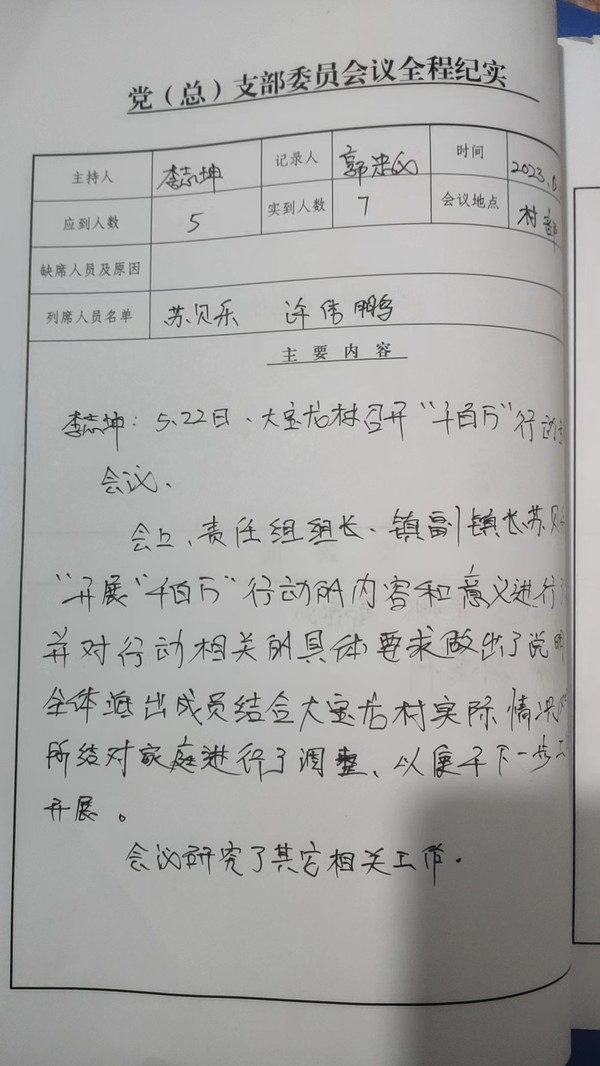 党（总）支部委员会议全程纪实
主持人 李志坤 记录人 郭 时间 2023.
应到人数 5 实到人数 7 会议地点 村部
缺席人员及原因
列席人员名单 苏贝乐 许伟鹏
主要内容
李志坤：5.22日、大宝老村召开“千百万”行动
会议、
会上、责任组组长、镇副镇长苏贝
“开展“千百万”行动的内容和意义进行
并对行动相关的具体要求做出了说明
全体派出成员结合大宝老村实际情况
所结对家庭进行了调整、以便于下一步
开展。
会议研究了其它相关工作.